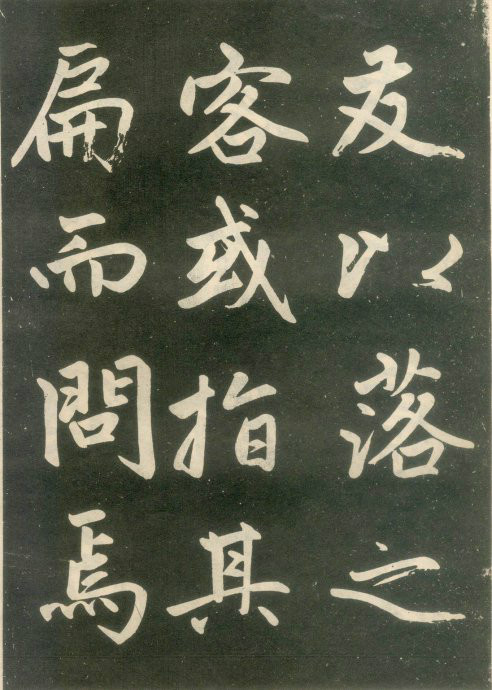 友以落之
客或指其
扁而問焉